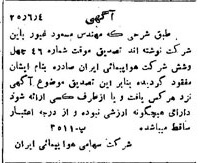 آگهی ۲۵/۶/۴
طبق شرحی که مهندس مسعود غیور باین
شرکت نوشته اند تصدیق موقت شماره ۴۶ چهل
وشش شرکت هواپیمائی ایران صادره بنام ایشان
مفقود گردیده بنابر این تصدیق موضوع آگهی
نزد هرکس یافت و یا ازطرف کسی ارائه شود
دارای هیچگونه ارزشی نبوده و از درجه اعتبار
ساقط میباشد پ-۳۵۱۱
شرکت سهامی هواپیمائی ایران